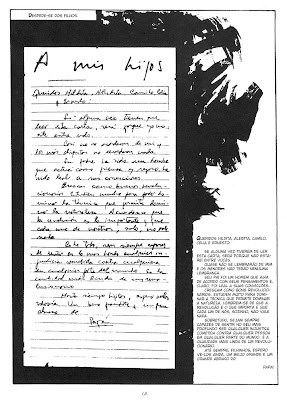 DESPEDE-SE DOS FILHOS.
A mis hijos
Queridos Hildita, Aleidita, Camilo, Celia
y Ernesto:
Si alguna vez tienen que
leer esta carta, será porque yo no
esté entre Uds.
Casi no se acordarán de mi y
los más chiquitos no recordarán nada.
Su padre ha sido un hombre que
actúa como piensa y, seguro, ha
sido leal a sus convicciones.
Crezcan como buenos revolu-
cionarios. Estudien mucho para
dominar la técnica que permite domi-
nar la naturaleza. Acuérdense que
la revolución es lo importante y que
cada uno de nosotros, solo, no vale
nada.
Sobre todo, sean siempre capaces
de sentir en lo más hondo cualquier in-
justicia cometida contra cualquiera
en cualquier parte del mundo. Es la
cualidad más linda de un revo-
lucionario.
Hasta siempre hijitos, espero verlos
todavía. Un beso grandote y un gran
abrazo de
Papá
QUERIDOS HILDITA, ALEIDITA, CAMILO,
CELIA E ERNESTO
SE ALGUMA VEZ TIVEREM DE LER
ESTA CARTA, SERÁ PORQUE NÃO ESTAREI
ENTRE VOCÊS.
QUASE NÃO SE LEMBRARÃO DE MIM
E OS MENORES NÃO TERÃO NENHUMA
LEMBRANÇA.
SEU PAI FOI UM HOMEM QUE AGIA
DE ACORDO COM SEUS PENSAMENTOS E,
CLARO, FOI LEAL A SUAS CONVICÇÕES.
CRESÇAM COMO BONS REVOLUCIO-
NÁRIOS. ESTUDEM MUITO PARA DOMINAR
A TÉCNICA QUE PERMITE DOMINAR
A NATUREZA. LEMBREM-SE DE QUE A
REVOLUÇÃO É O QUE IMPORTA E QUE
CADA UM DE NÓS, SOZINHO, NÃO VALE
NADA.
SOBRETUDO, SEJAM SEMPRE
CAPAZES DE SENTIR NO SEU MAIS
PROFUNDO SER QUALQUER INJUSTIÇA
COMETIDA CONTRA QUALQUER PESSOA
EM QUALQUER PARTE DO MUNDO. É A
QUALIDADE MAIS LINDA DE UM REVOLU-
CIONÁRIO.
ATÉ SEMPRE, FILHINHOS, ESPERO
VÊ-LOS AINDA. UM BEIJO GRANDE E UM
GRANDE ABRAÇO DO
PAPAI